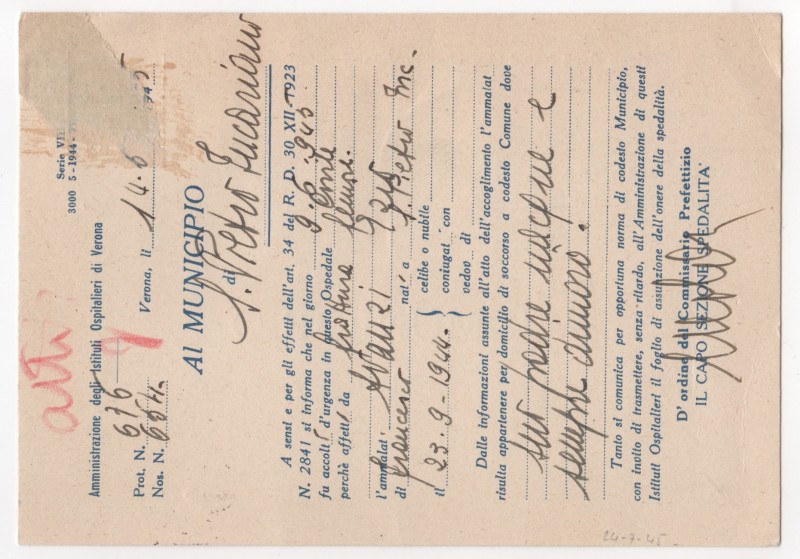 Serie VII
3000 5-1944-
Amministrazione degli Istituti Ospitalieri di Verona
atti
Prot. N. 676
Nos. N.
Verona, li 14.6 1945
Al MUNICIPIO
di
S. Pietro Incariano
A sensi e per gli effetti dell'art. 34 del R. D. 30 XII-1923
N. 2841 si informa che nel giorno 9.6.945
fu accolt d'urgenza in questo Ospedale
perchè affett da frattura femore
l'ammalat Avanzi
di Francesco nat a S. Pietro Inc.
il 23-9-1944.
celibe o nubile
coniugat con
vedov di
Dalle informazioni assunte all'atto dell'accoglimento l'ammalat
risulta appartenere per domicilio di soccorso a codesto Comune dove
suo padre nacque e
sempre dimorò.
Tanto si comunica per opportuna norma di codesto Municipio,
con invito di trasmettere, senza ritardo, all'Amministrazione di questi
Istituti Ospitalieri il foglio di assunzione dell'onere della spedalità.
D'ordine del Commissario Prefettizio
IL CAPO SEZIONE SPEDALITA'
24-7-45